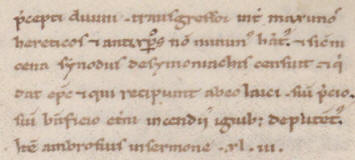 p̄cepti diuini . transgressor inť maximos
hereticos ⁊ antixp̄os nō minim᷒ hab̄. ⁊ sicut
cena synodus de symoniachis censuit ⁊ q
dat ep̄c ⁊ qui recipiunt ab eo laici . siue p̄cio .
siue b̄nficio etn̄i incendij ignib᷒ deputēt᷒.
Itē ambrosius in sermone . xl . iii .